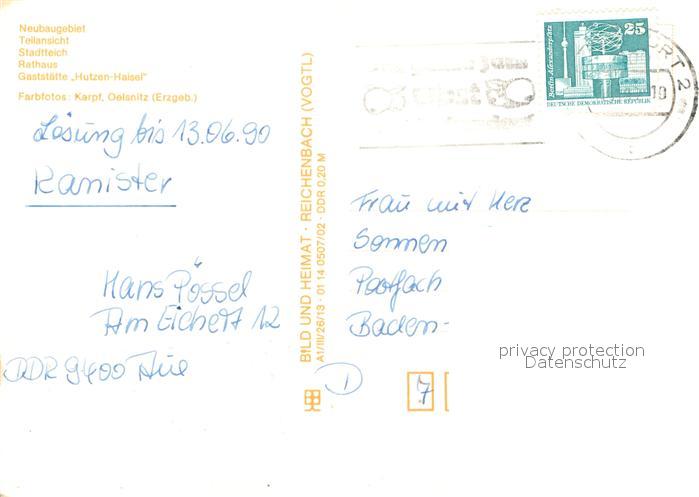 Neubaugebiet
Teilansicht
Stadtteich
Rathaus
Gaststätte „Hutzen-Haisel"
Farbfotos: Karpf, Oelsnitz (Erzgeb.)
Lösung bis 13.06.90
Kanister
Hans Pössel
Am Eichert 12
DDR 9400 Aue
BILD UND HEIMAT · REICHENBACH (VOGTL)
A1/III/26/13 · 01 14 0507/02 · DDR 0,20 M
25
Berlin-Alexanderplatz
DEUTSCHE DEMOKRATISCHE REPUBLIK
Frau mit Herz
Sonnen
Postfach
Baden-
D
7
privacy protection
Datenschutz